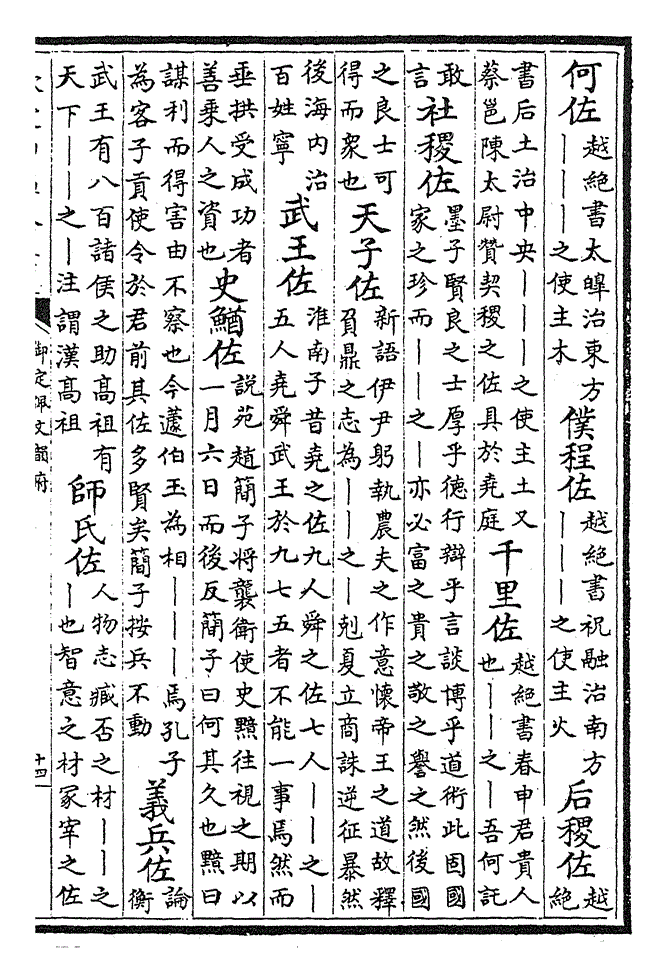 何佐 越絕書太皞治東方
丨丨丨之使主木
僕程佐 越絕書祝融治南方
丨丨丨之使主火
后稷佐 越
絕
書后土治中央丨丨丨之使主土又
蔡邕陳太尉贊契稷之佐具於堯庭
千里佐 越絕書春申君貴人
也丨丨之丨吾何託
敢
言
社稷佐 墨子賢良之士厚乎德行辯乎言談博乎道術此固國
家之珍而丨丨之丨亦必富之貴之敬之譽之然後國
之良士可
得而衆也
天子佐 新語伊尹躬執農夫之作意懷帝王之道故釋
負鼎之志為丨丨之丨剋夏立商誅逆征暴然
後海内治
百姓寧
武王佐 淮南子昔堯之佐九人舜之佐七人丨丨之丨
五人堯舜武王於九七五者不能一事焉然而
垂拱受成功者
善乘人之資也
史鰌佐 説苑趙簡子將襲衛使史黯往視之期以
一月六日而後反簡子曰何其久也黯曰
謀利而得害由不察也今蘧伯玉為相丨丨丨焉孔子
為客子貢使令於君前其佐多賢矣簡子按兵不動
義兵佐 論
衡
武王有八百諸侯之助高祖有
天下丨丨之丨注謂漢高祖
師氏佐 人物志臧否之材丨丨之
丨也智意之材冢宰之佐
御定佩文韻府
十四